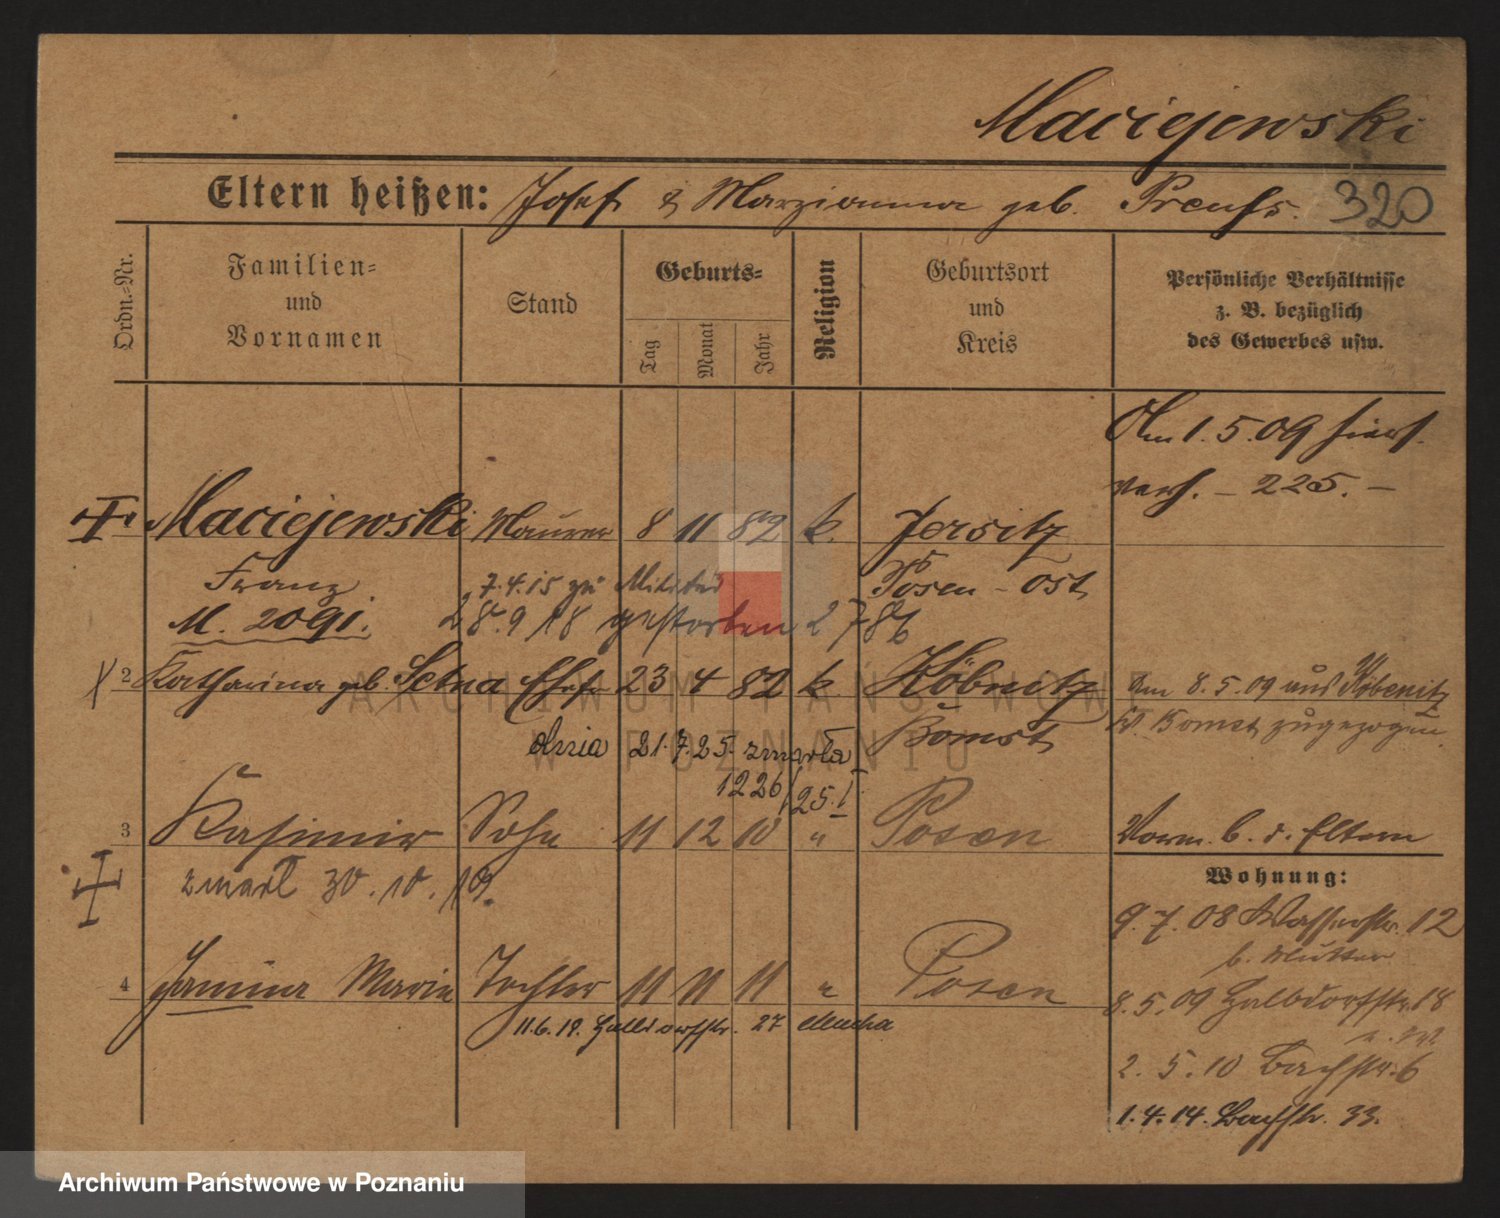 Maciejewski
Eltern heißen: Josef & Marzianna geb. Preuss. 320
Ordn.-Nr.
Familien- und Vornamen
Stand
Geburts-
Tag
Monat
Jahr
Religion
Geburtsort und Kreis
Persönliche Verhältnisse z. B. bezüglich des Gewerbes usw.
Am 1.5.09 hier
verh. – 225. –
Maciejewski Maurer 8 11 82 k. Jersitz
Franz 7.4.15 zu Militär Posen-Ost
M. 2091. 28.9 18 gestorben
2 Katharina geb. Setna Ehefr 23 4 82 k Köbnitz am 8.5.09 aus Köbenitz
Kr. Bomst zugezogen.
Bomst
dnia 21.7.25. zmarła
1226/25.I.
3 Kasimir Sohn 11 12 10 " Posen Vorm. b. d. Eltern
zmarł 30.10.19.
Wohnung:
9.7.08 Wasserstr. 12
b. Mutter
4 Janina Marie Tochter 11 11 11 " Posen
8.5.09 Halbdorfstr. 18
11.6.19. Halbdorfstr. 27 Mucha
2.5.10 Bachstr. 6
1.4.14. Bachstr. 33.
ARCHIWUM PAŃSTWOWE
W POZNANIU
Archiwum Państwowe w Poznaniu